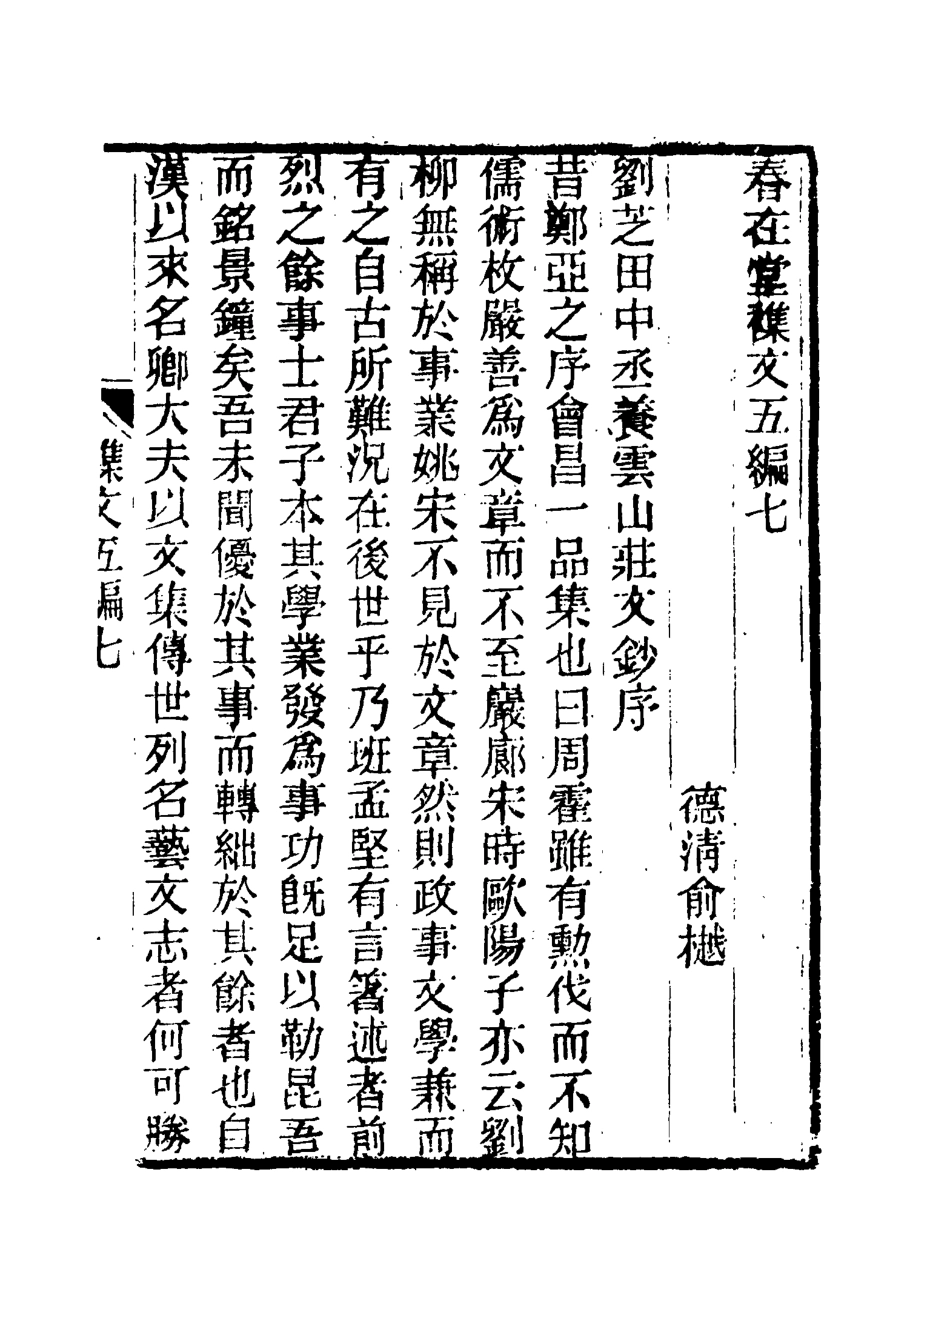 春在堂襍文五編七
德清俞樾
劉芝田中丞養雲山莊文鈔序
昔鄭亞之序會昌一品集也曰周霍雖有勳伐而不知
儒術枚嚴善爲文章而不至巖廊宋時歐陽子亦云劉
柳無稱於事業姚宋不見於文章然則政事文學兼而
有之自古所難況在後世乎乃班孟堅有言箸述者前
烈之餘事士君子本其學業發爲事功旣足以勒昆吾
而銘景鐘矣吾未聞優於其事而轉絀於其餘者也自
漢以來名卿大夫以文集傳世列名藝文志者何可勝
集文五編七